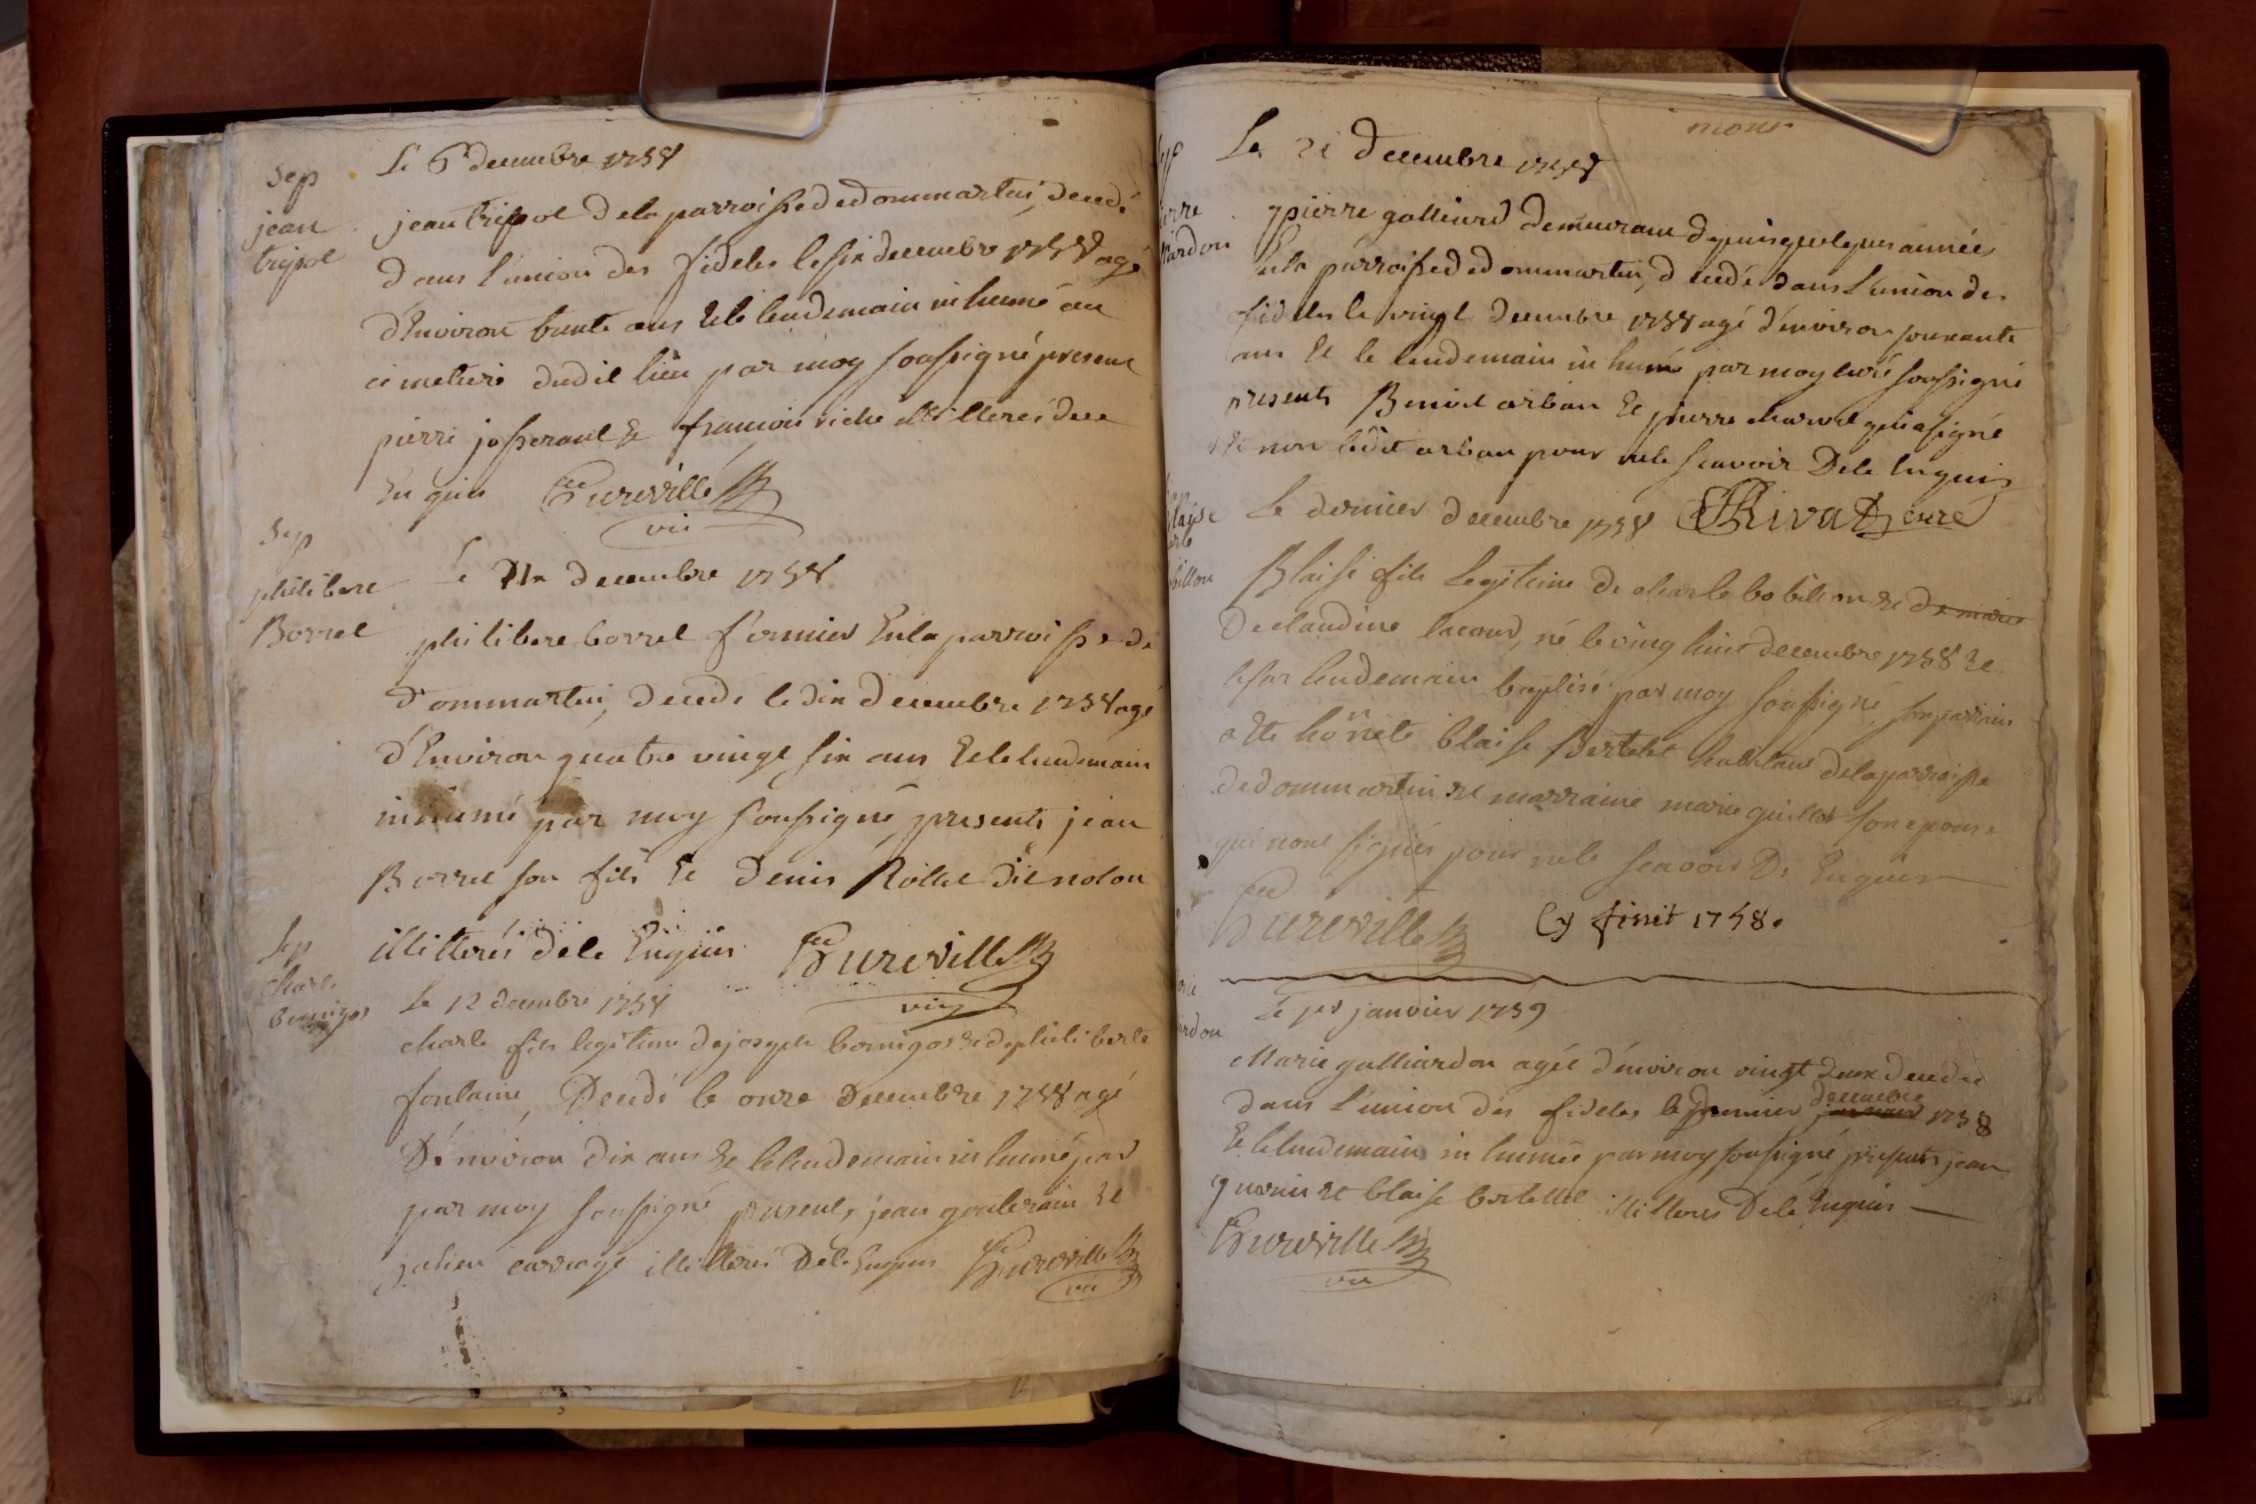 Sep
jean
tripol
Le 6e decembre 1758
jean tripol de la parroisse de dommartin, decedé
dans l'union des fideles le six decembre 1758 agé
d'Environ trente ans Et le lendemain inhumé au
cimetiere dudit lieu par moy soussigné present
pierre josserant Et francois riche illitterés dece
Enquis Cureville
vic
Sep
philibert
Borrel
Le Dix decembre 1758
philibert borrel fermier En la parroisse de
dommartin, decedé le dix decembre 1758 agé
d'Environ quatre vingt six ans Et le lendemain
inhumé par moy soussigné, presents jean
Borrel son fils Et Denis Rollet dit nolon
illitterés de ce Enquis Cureville
vic
Sep
Charle
bernigos
Le 12 decembre 1758
charle fils legitime de joseph bernigos Et de philiberte
fontaine, Decedé le onze Decembre 1758 agé
D'environ dix ans Et le lendemain inhumé par
par moy soussigné presents, jean
julien illitterés De ce Enquis Cureville
vic
mour
Le 21 decembre 1758
pierre demeurant depuis quelques années
En la parroisse de dommartin, decedé dans L'union des
fideles le vingt decembre 1758 agé d'environ soixante
ans Et le lendemain inhumé par moy curé soussigné
presents Benoit arban Et pierre qui a signé
Et non ledit arban pour ne le scavoir De ce Enquis
Blaise
Le dernier decembre 1758 Rivat curé
Blaise fils Legitime de charle bobillon Et de marie
De claudine lacour, né le vingt huit decembre 1758 Et
le sur lendemain baptisé par moy soussigné, son parrain
a Eté honnete blaise Bertelet habitant de la parroisse
de dommartin Et marraine marie guillot son epouse
qui n'ont signés pour ne le scavoir De Enquis
Cureville Cy finit 1758.
Le 1er janvier 1759
Marie galliardon agée d'environ vingt deux decedée
dans l'union des fideles le dernier decembre 1758
Et le lendemain inhumée par moy soussigné, presents jean
guerin Et blaise bertellet illitterés De ce Enquis
Cureville
vic